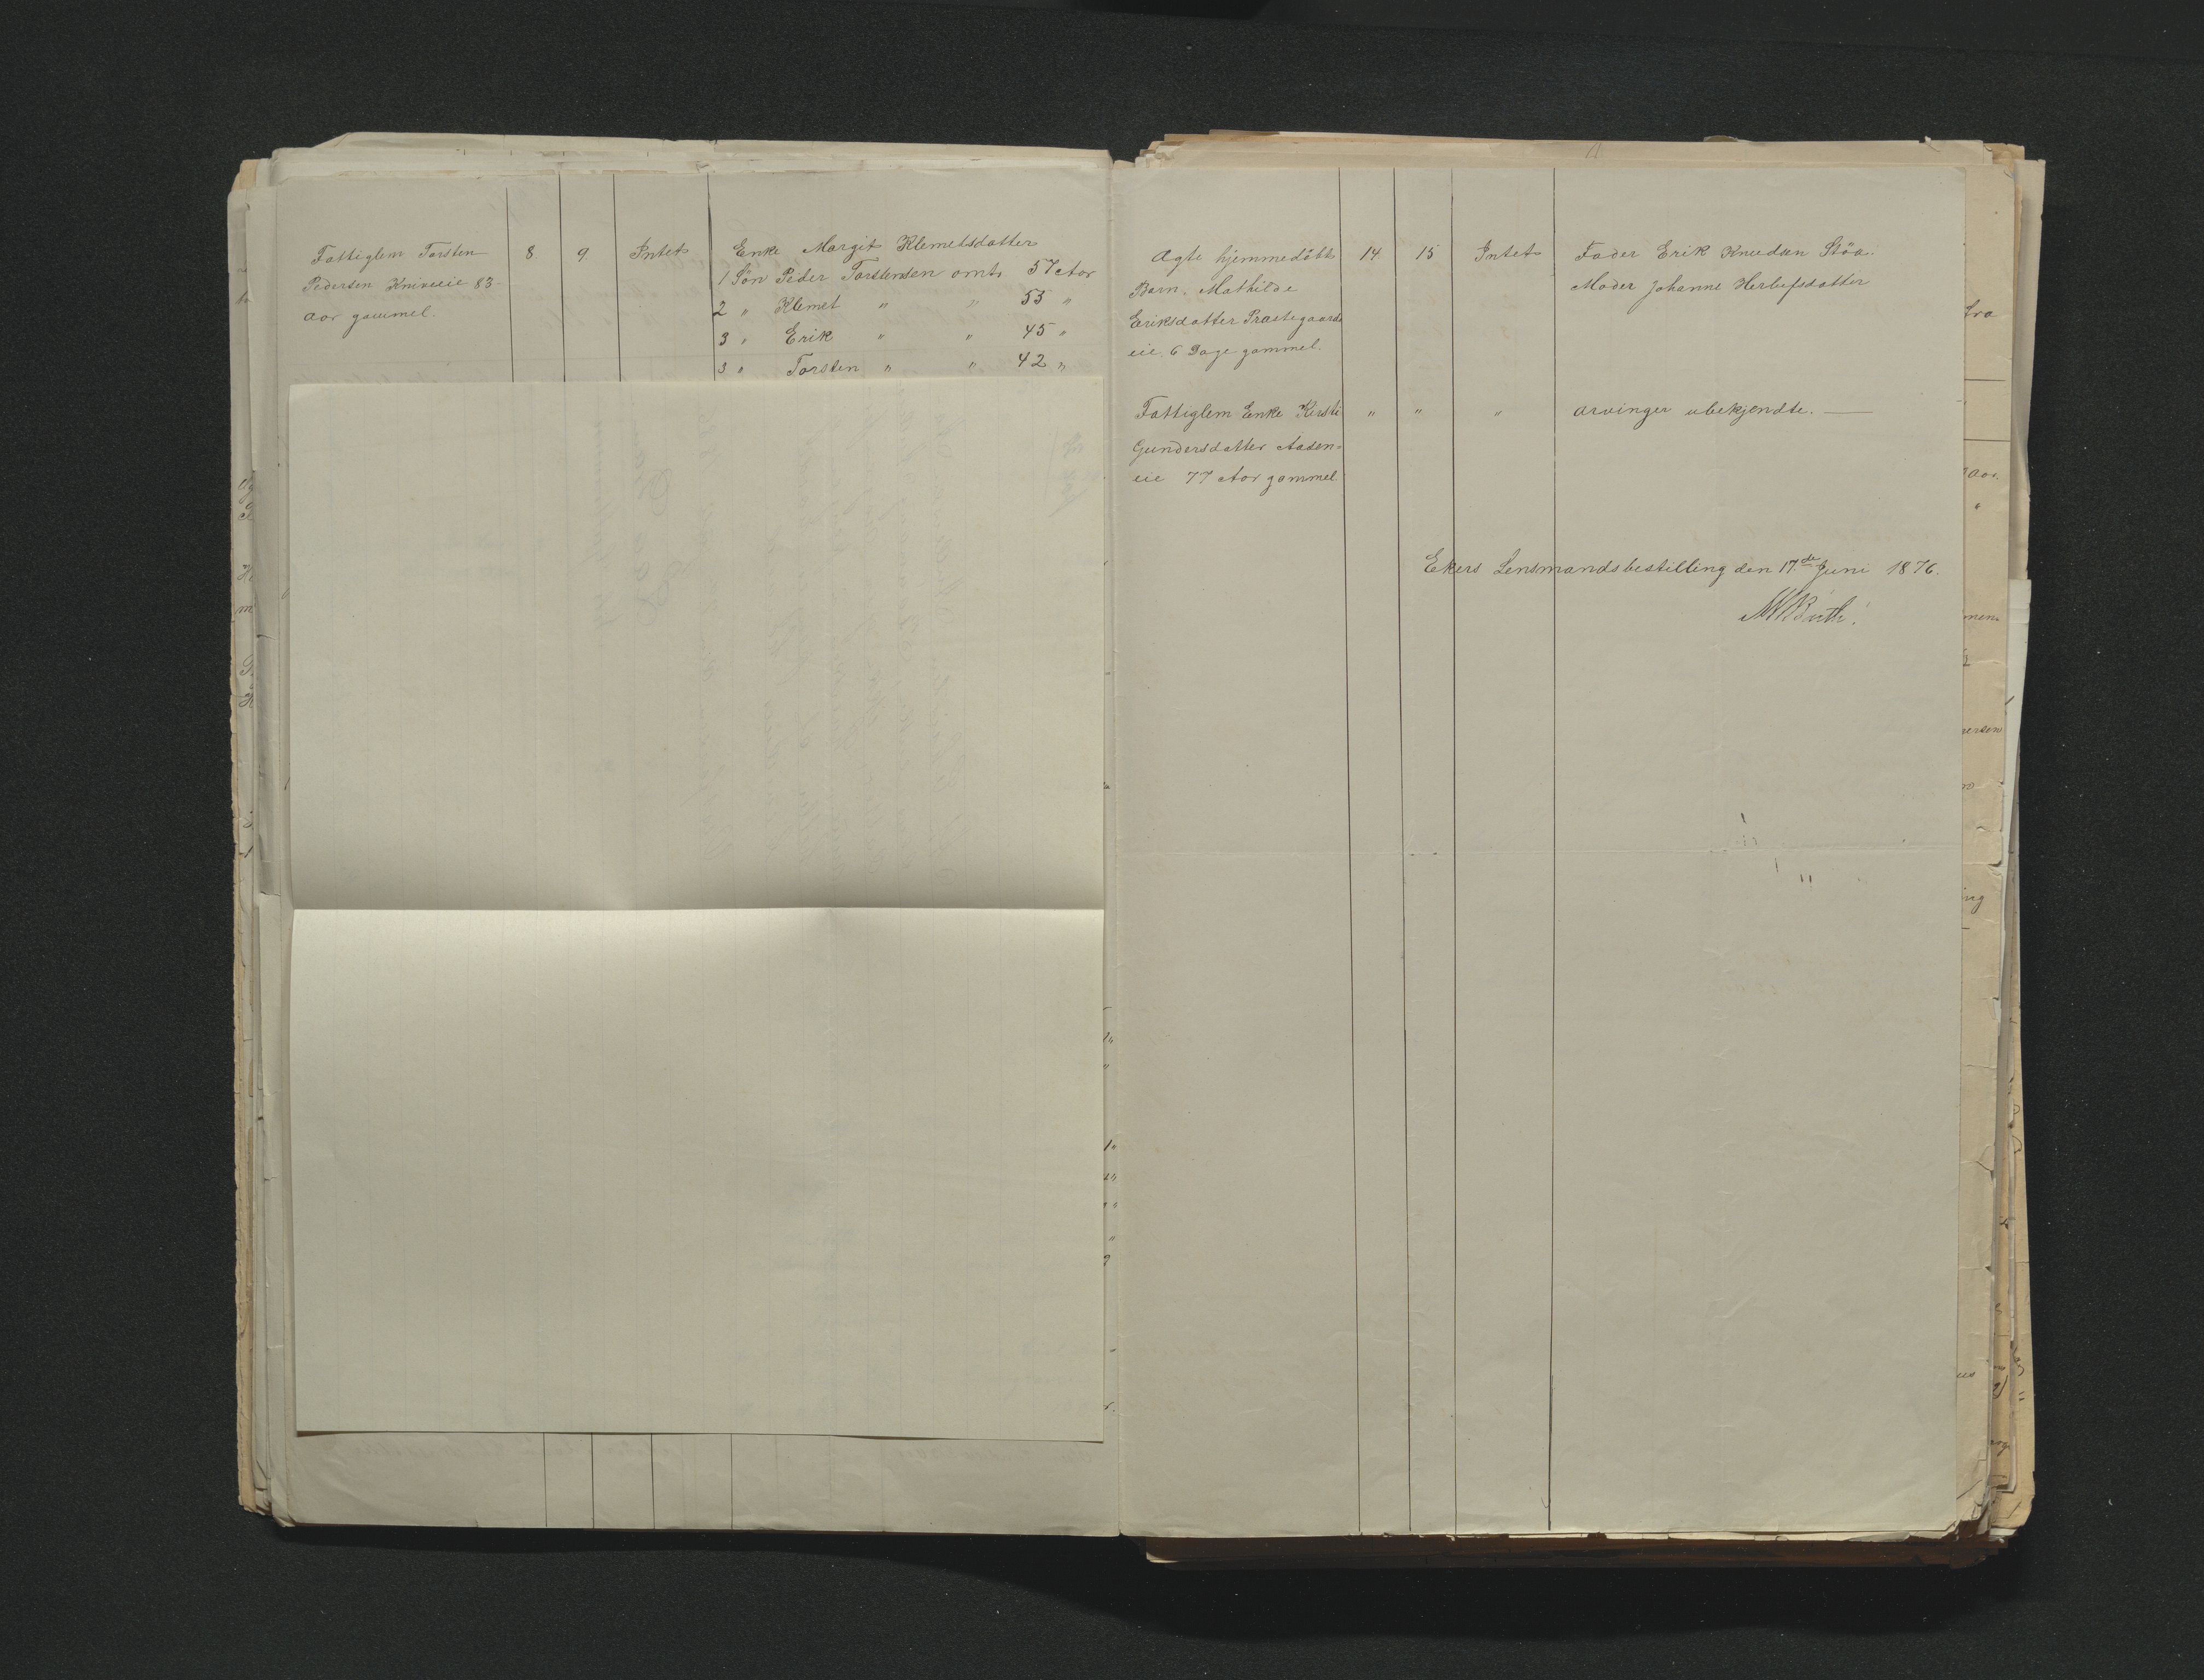 Fattiglem Torsten 8 9 Intet Enke Margit Klemetsdatter
Pedersen Kniveeie 83 1 Søn Peder Torstensen omtr 57 Aar
Aar gammel. 2 " Klemet " " 53 "
3 " Erik " " 45 "
3 " Torsten " " 42 "
Ægte hjemmedøbt 14 15 Intet Fader Erik Knudsen Støa.
Barn. Mathilde Moder Johanne
Eriksdatter Præstegaards
eie. 6 Dage gammel.
Fattiglem Enke Kirsti " " " Arvinger ubekjendte. —
Gundersdatter Aasen=
eie 77 Aar gammel
Ekers Lensmandsbestilling den 17de Juni 1876.